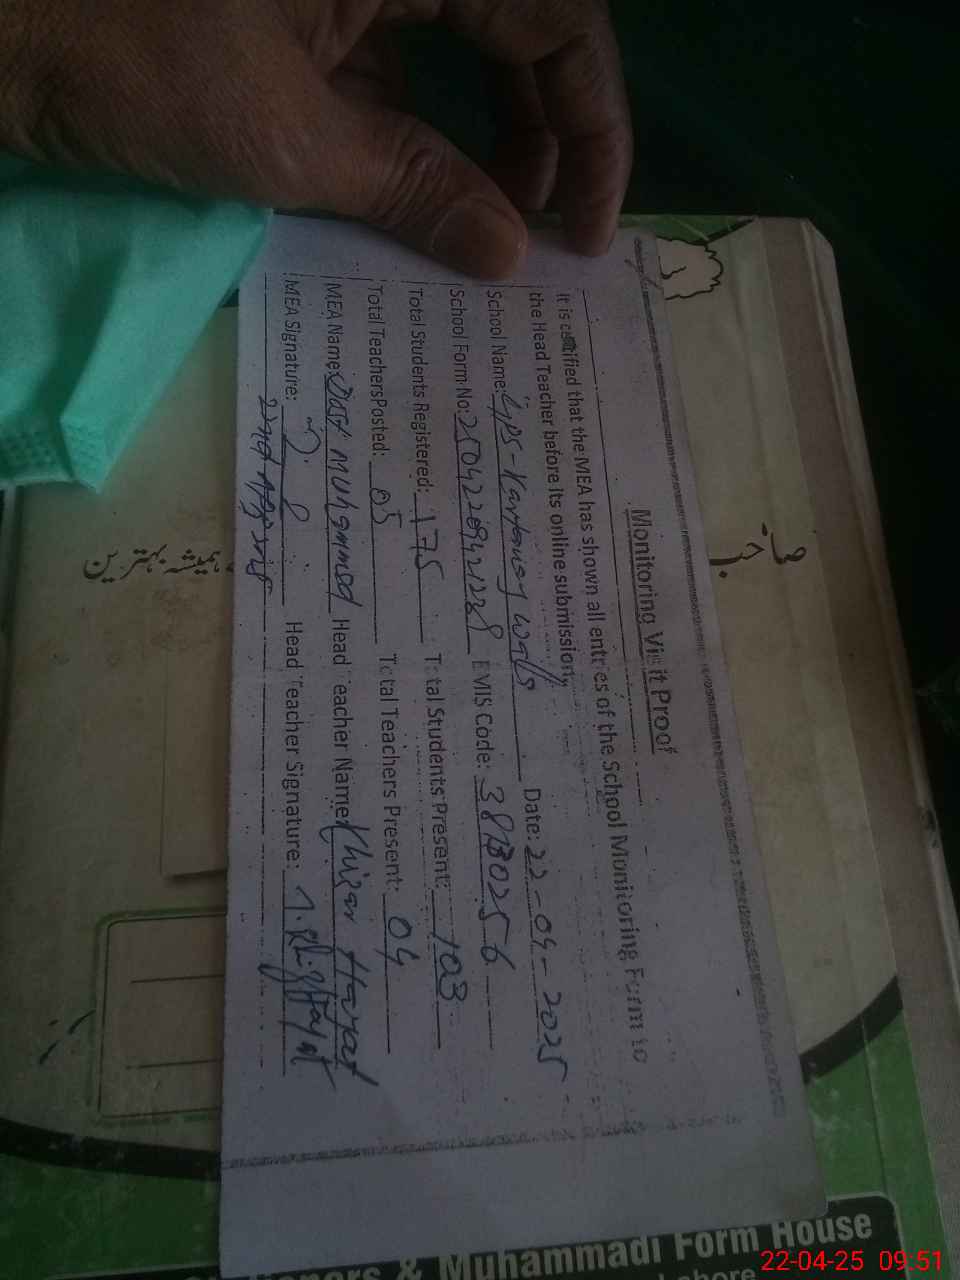 Monitoring Visit Proof
It is certified that the MEA has shown all entries of the School Monitoring Form to
the Head Teacher before its online submission.
School Name: GPS - Walla Date: 22-04-2025
School Form No: EMIS Code:
Total Students Registered: 175 Total Students Present: 103
Total Teachers Posted: 05 Total Teachers Present: 04
MEA Name: Dost Muhammad Head Teacher Name: Khizar Hayat
MEA Signature: Head Teacher Signature:
صاحب
ہمیشہ بہترین
& Muhammadi Form House
Lahore
22-04-25 09:51